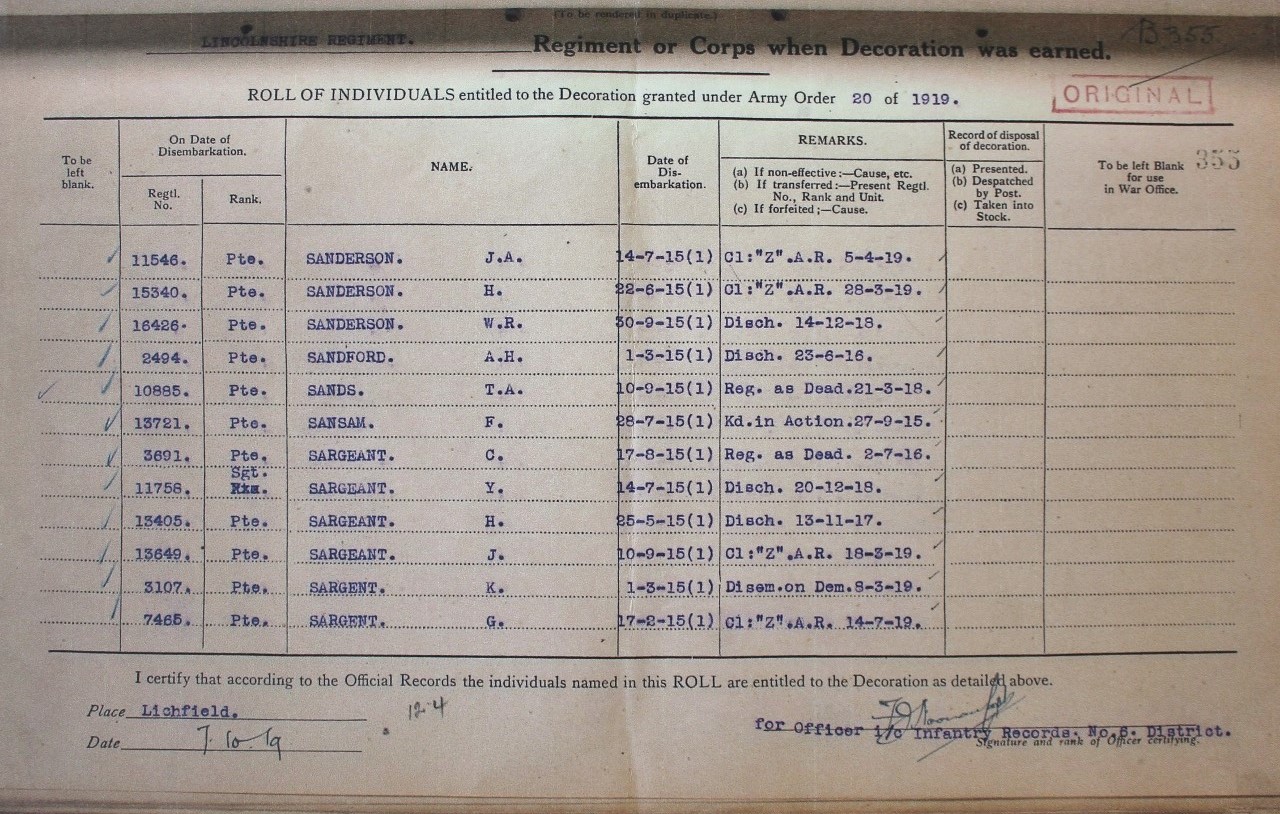 (To be rendered in duplicate.)
B355
LINCOLNSHIRE REGIMENT. Regiment or Corps when Decoration was earned.
ROLL OF INDIVIDUALS entitled to the Decoration granted under Army Order 20 of 1919.
ORIGINAL
To be left blank.
On Date of Disembarkation.
Regtl. No.
Rank.
NAME.
Date of Dis-embarkation.
REMARKS.
(a) If non-effective:—Cause, etc.
(b) If transferred:—Present Regtl. No., Rank and Unit.
(c) If forfeited;—Cause.
Record of disposal of decoration.
(a) Presented.
(b) Despatched by Post.
(c) Taken into Stock.
To be left Blank for use in War Office.
355
11546. Pte. SANDERSON. J.A. 14-7-15(1) Cl:"Z".A.R. 5-4-19.
15340. Pte. SANDERSON. H. 22-6-15(1) Cl:"Z".A.R. 28-3-19.
16426. Pte. SANDERSON. W.R. 30-9-15(1) Disch. 14-12-18.
2494. Pte. SANDFORD. A.H. 1-3-15(1) Disch. 23-6-16.
10885. Pte. SANDS. T.A. 10-9-15(1) Reg. as Dead.21-3-18.
13721. Pte. SANSAM. F. 28-7-15(1) Kd.in Action.27-9-15.
3691. Pte. SARGEANT. C. 17-8-15(1) Reg. as Dead. 2-7-16.
Sgt.
11758. SARGEANT. Y. 14-7-15(1) Disch. 20-12-18.
13405. Pte. SARGEANT. H. 25-5-15(1) Disch. 13-11-17.
13649. Pte. SARGEANT. J. 10-9-15(1) Cl:"Z".A.R. 18-3-19.
3107. Pte. SARGENT. K. 1-3-15(1) Disem.on Dem.8-3-19.
7465. Pte. SARGENT. G. 17-2-15(1) Cl:"Z".A.R. 14-7-19.
I certify that according to the Official Records the individuals named in this ROLL are entitled to the Decoration as detailed above.
Place Lichfield.
12-4
Date 7.10.19
for Officer i/c Infantry Records. No.6. District.
Signature and rank of Officer certifying.